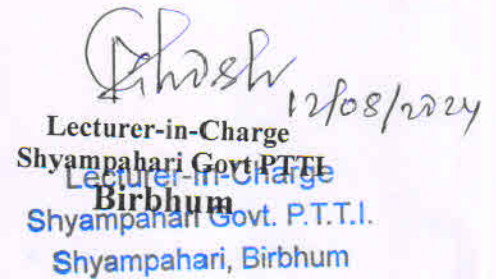 Ghosh
12/08/2024
Lecturer-in-Charge
Shyampahari Govt PTTI
Lecturer-in-Charge
Birbhum
Shyampahari Govt. P.T.T.I.
Shyampahari, Birbhum